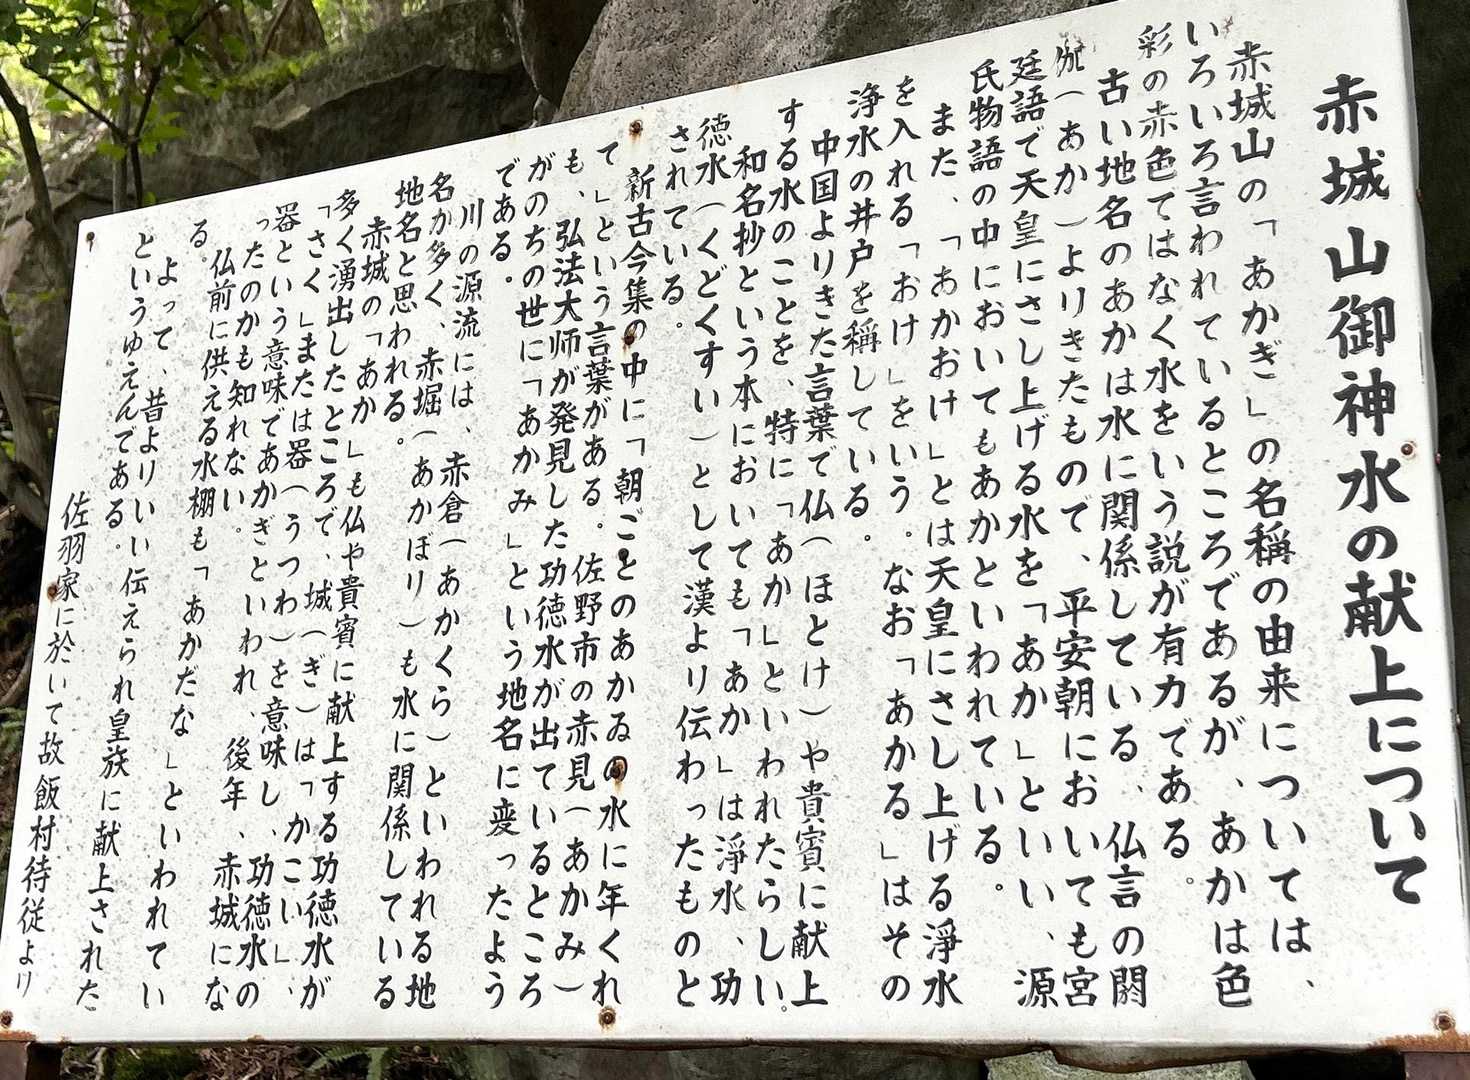 赤城山御神水の献上について
赤城山の「あかぎ」の名稱の由来については、
いろいろ言われているところであるが、あかは色
彩の赤色てはなく水をいう説が有力である。
古い地名のあかは水に関係している、仏言の閼
伽(あか)よりきたもので、平安朝においても宮
廷語で天皇にさし上げる水を「あか」といい、源
氏物語の中においてもあかといわれている。
また、「あかおけ」とは天皇にさし上げる淨水
を入れる「おけ」をいう。なお「あかる」はその
浄水の井戸を稱している。
中国よりきた言葉で仏(ほとけ)や貴賓に献上
する水のことを、特に「あか」といわれたらしい。
和名抄という本においても「あか」は淨水、功
徳水(くどくすい)として漢より伝わったものと
されている。
新古今集の中に「朝ごとのあかゐの水に年くれ
て」という言葉がある。佐野市の赤見(あかみ)
も、弘法大师が発見した功徳水が出ているところ
がのちの世に「あかみ」という地名に変ったよう
である。
川の源流には、赤倉(あかくら)といわれる地
名が多く、赤堀(あかぼり)も水に関係している
地名と思われる。
赤城の「あか」も仏や貴賓に献上する功徳水が
多く湧出したところで、城(ぎ)は「かこい」、
「さく」または器(うつわ)を意味し、功徳水の
器という意味であかぎといわれ、後年、赤城にな
ったのかも知れない。
仏前に供える水棚も「あかだな」といわれてい
る。
よって、昔よりいい伝えられ皇族に献上された
というゆえんである。
佐羽家に於いて故飯村待従より